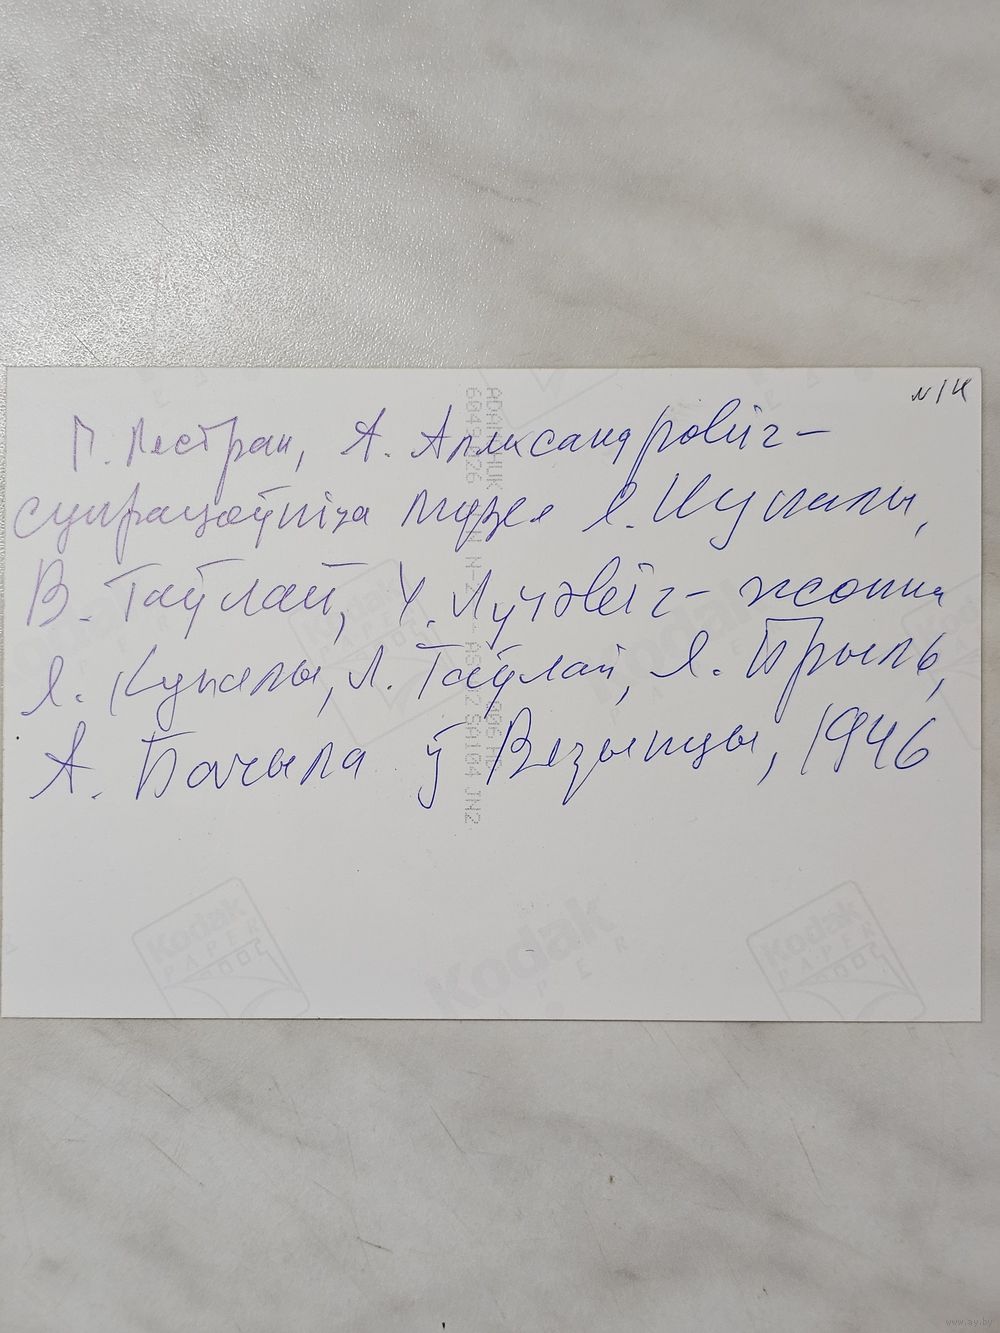 N14
П. Пестрак, А. Александровіч –
супрацоўніца музея Я. Купалы,
В. Таўлай, У. Луцэвіч – жонка
Я. Купалы, Л. Таўлай, Я. Брыль,
А. Бачыла ў Вязынцы, 1946
Kodak
PAPER
Kodak
PER
Kodak
PAPER
www.ay.by